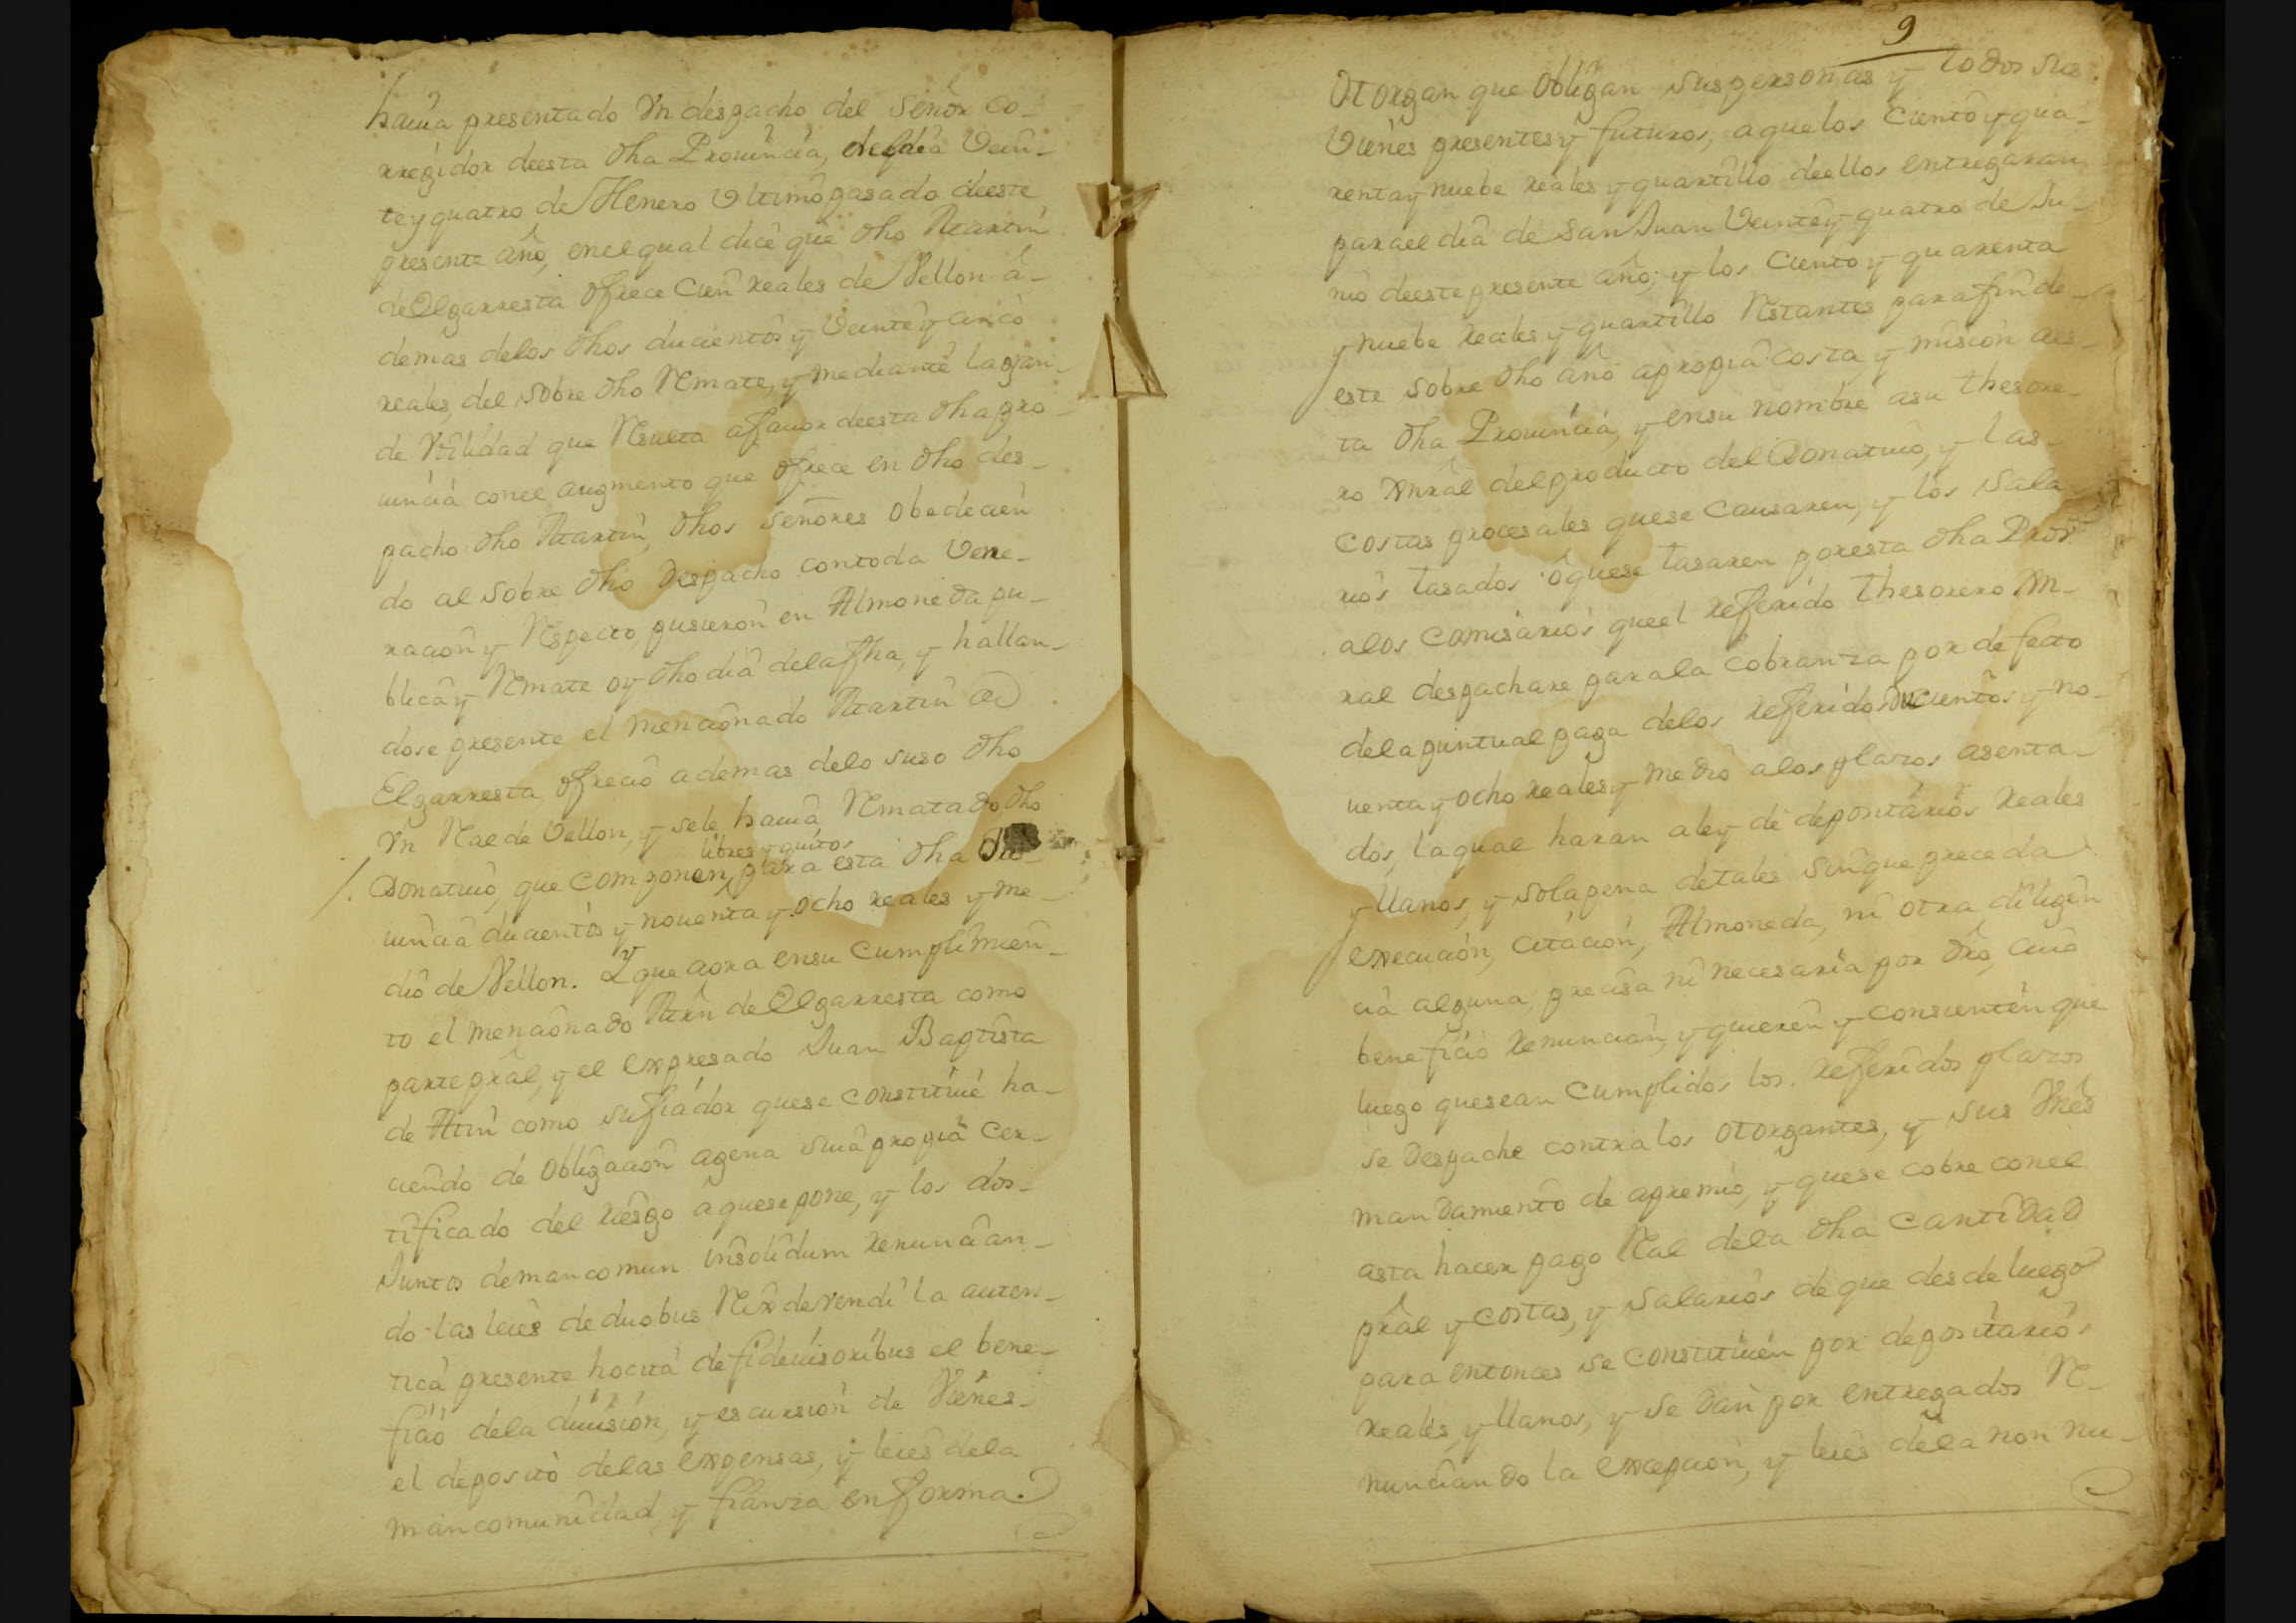 hauia presentado Vn despacho del Señor Co-
rregidor deesta dha Prouincia, del dia Vein-
te y quatro de Henero Vltimo pasado deeste
presente año, en el qual dice que dho Martin
de Elgarresta ofrece Cien reales de Vellon a-
demas delos dhos ducientos y Veinte y cinco
reales, del sobre dho Remate, y mediante la gran-
de Vtilidad que Resulta afauor deesta dha pro-
uincia con el augmento que ofrece en dho des-
pacho dho Martin, dhos Señores obedecien
do al sobre dho Despacho contoda Vene-
racion y Respecto, pusieron en Almoneda pu-
blica y Remate oy dho dia dela fha, y hallan-
dose presente el mencionado Martin de
Elgarresta ofrecio ademas delo suso dho
Vn Real de Vellon, y sele hauia Rematado dho
libres y quitos
Donatiuo, que componen para esta dha Pro-
uincia ducientos y nouenta y ocho reales y me-
dio de Vellon. Y que aora ensu Cumplimien-
to el mencionado Mrn de Elgarresta como
parte pral, y el expresado Juan Baptista
de como sufiador quese constituie ha-
ciendo de obligacion agena suia propia cer-
tificado del riesgo aquese pone, y los dos
Juntos demancomun insolidum renuncian-
do las leies de duobus Rex devendi la auten-
tica presente hocita de fideiusoribus el bene-
ficio dela diuision, y escursion de Vienes
el deposito delas expensas, y leies dela
mancomunidad, y fianza en forma.
9
Otorgan que obligan suspersonas y todos sus
Vienes presentes y futuros, aquelos Ciento y qua-
renta y nuebe reales y quartillo deellos entregaran
parael dia de San Juan Veinte y quatro de Ju-
nio deeste presente año; y los Ciento y quarenta
y nuebe reales y quartillo Restantes para fin de
este sobre dho año apropia costa y mision aes-
ta dha Prouincia, y ensu nombre asu thesore-
ro Xnral delproducto del Donatiuo, y las
costas procesales quese causaren, y los Sala-
rios tasados oquese tasaren poresta dha Prou.
alos Comisarios queel referido thesorero Xn-
ral despachare parala cobranza por defecto
dela puntual paga delos referidos ducientos y no-
uenta y ocho reales y medio alos plazos asenta-
dos, laqual haran aley de depositarios reales
y llanos, y solapena detales sinque preceda
execucion, citacion, Almoneda, ni otra diligen
cia alguna, precisa ni necesaria por dro, cuio
beneficio renuncian, y quieren y consienten que
luego quesean cumplidos los referidos plazos
se Despache contra los otorgantes, y sus Vnes
mandamiento de apremio, y quese cobre conel
asta hacer pago Real dela dha cantidad
pral y costas, y salarios de que desde luego
para entonces se constituien por depositarios
reales, y llanos, y se dan por entregados Re-
nunciando la excepcion, y leies dela non nu-